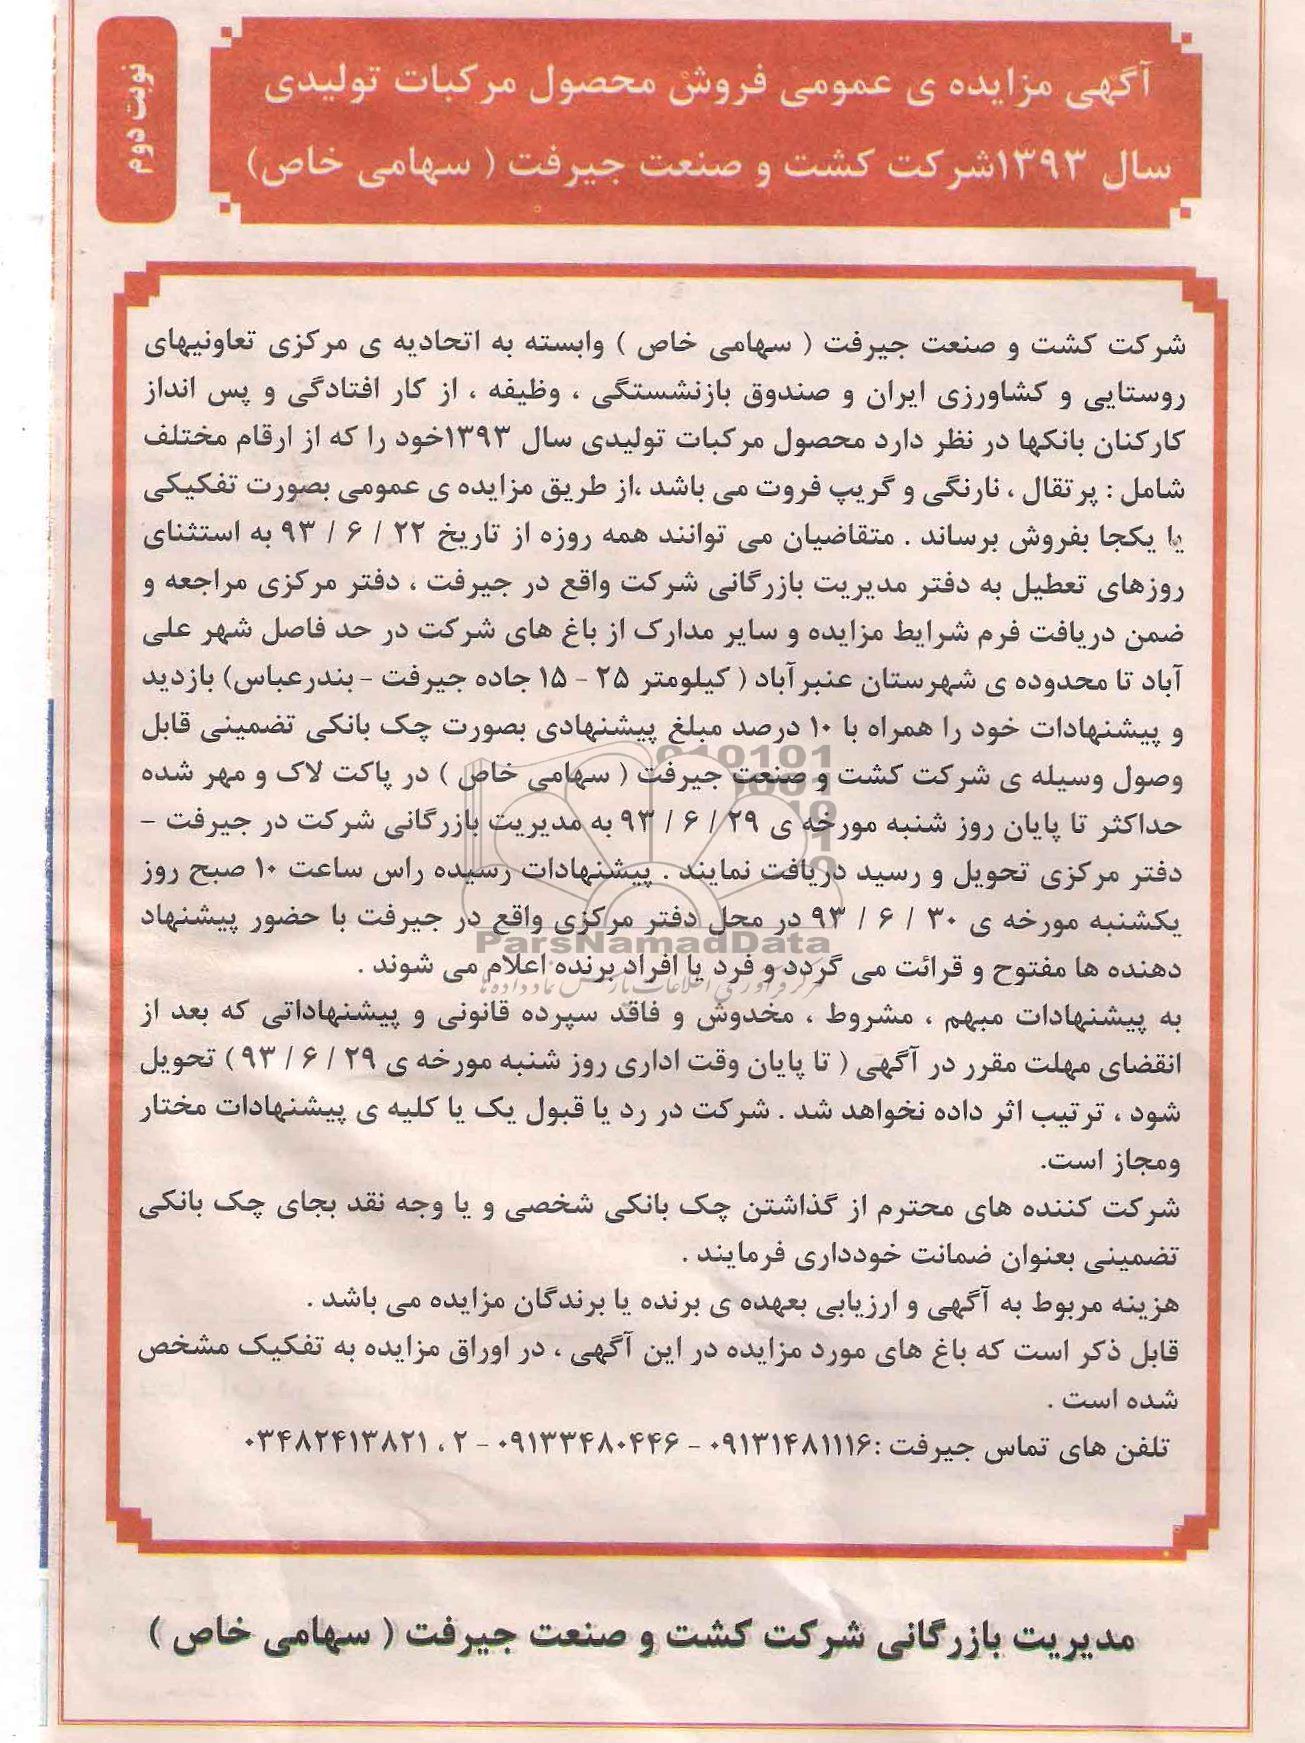 نوبت دوم
آگهی مزایده ی عمومی فروش محصول مرکبات تولیدی
سال ۱۳۹۳شرکت کشت و صنعت جیرفت ( سهامی خاص)
شرکت کشت و صنعت جیرفت ( سهامی خاص ) وابسته به اتحادیه ی مرکزی تعاونیهای
روستایی و کشاورزی ایران و صندوق بازنشستگی ، وظیفه ، از کار افتادگی و پس انداز
کارکنان بانکها در نظر دارد محصول مرکبات تولیدی سال ۱۳۹۳خود را که از ارقام مختلف
شامل : پرتقال ، نارنگی و گریپ فروت می باشد ،از طریق مزایده ی عمومی بصورت تفکیکی
یا یکجا بفروش برساند . متقاضیان می توانند همه روزه از تاریخ ۲۲ / ۶ / ۹۳ به استثنای
روزهای تعطیل به دفتر مدیریت بازرگانی شرکت واقع در جیرفت ، دفتر مرکزی مراجعه و
ضمن دریافت فرم شرایط مزایده و سایر مدارک از باغ های شرکت در حد فاصل شهر علی
آباد تا محدوده ی شهرستان عنبرآباد ( کیلومتر ۲۵ - ۱۵ جاده جیرفت - بندرعباس) بازدید
و پیشنهادات خود را همراه با ۱۰ درصد مبلغ پیشنهادی بصورت چک بانکی تضمینی قابل
وصول وسیله ی شرکت کشت و صنعت جیرفت ( سهامی خاص ) در پاکت لاک و مهر شده
حداکثر تا پایان روز شنبه مورخه ی ۲۹ / ۶ / ۹۳ به مدیریت بازرگانی شرکت در جیرفت -
دفتر مرکزی تحویل و رسید دریافت نمایند . پیشنهادات رسیده راس ساعت ۱۰ صبح روز
یکشنبه مورخه ی ۳۰ / ۶ / ۹۳ در محل دفتر مرکزی واقع در جیرفت با حضور پیشنهاد
دهنده ها مفتوح و قرائت می گردد و فرد یا افراد برنده اعلام می شوند .
به پیشنهادات مبهم ، مشروط ، مخدوش و فاقد سپرده قانونی و پیشنهاداتی که بعد از
انقضای مهلت مقرر در آگهی ( تا پایان وقت اداری روز شنبه مورخه ی ۲۹ / ۶ / ۹۳ ) تحویل
شود ، ترتیب اثر داده نخواهد شد . شرکت در رد یا قبول یک یا کلیه ی پیشنهادات مختار
ومجاز است.
شرکت کننده های محترم از گذاشتن چک بانکی شخصی و یا وجه نقد بجای چک بانکی
تضمینی بعنوان ضمانت خودداری فرمایند .
هزینه مربوط به آگهی و ارزیابی بعهده ی برنده یا برندگان مزایده می باشد .
قابل ذکر است که باغ های مورد مزایده در این آگهی ، در اوراق مزایده به تفکیک مشخص
شده است .
تلفن های تماس جیرفت :۰۹۱۳۱۴۸۱۱۱۶ - ۰۹۱۳۳۴۸۰۴۴۶ - ۲ ، ۰۳۴۸۲۴۱۳۸۲۱
مدیریت بازرگانی شرکت کشت و صنعت جیرفت ( سهامی خاص )
ParsNamadData
مرکز فرآوری اطلاعات پارس نماد داده ها